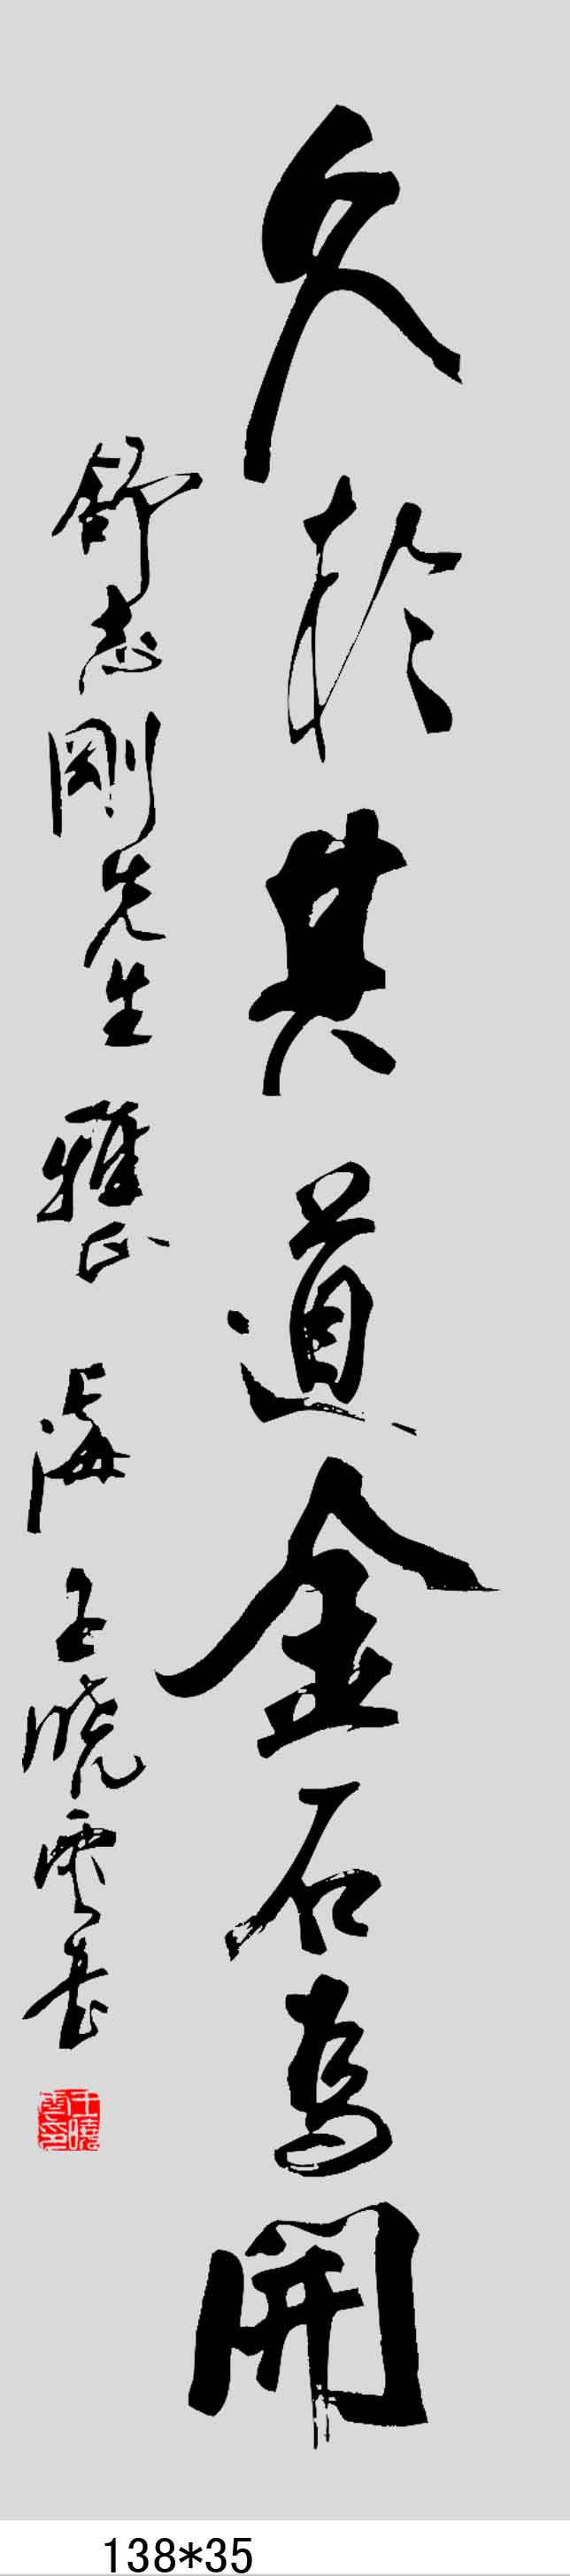 久於其道金石為開
舒志剛先生雅正 海上王曉雲書
王曉雲印
138*35